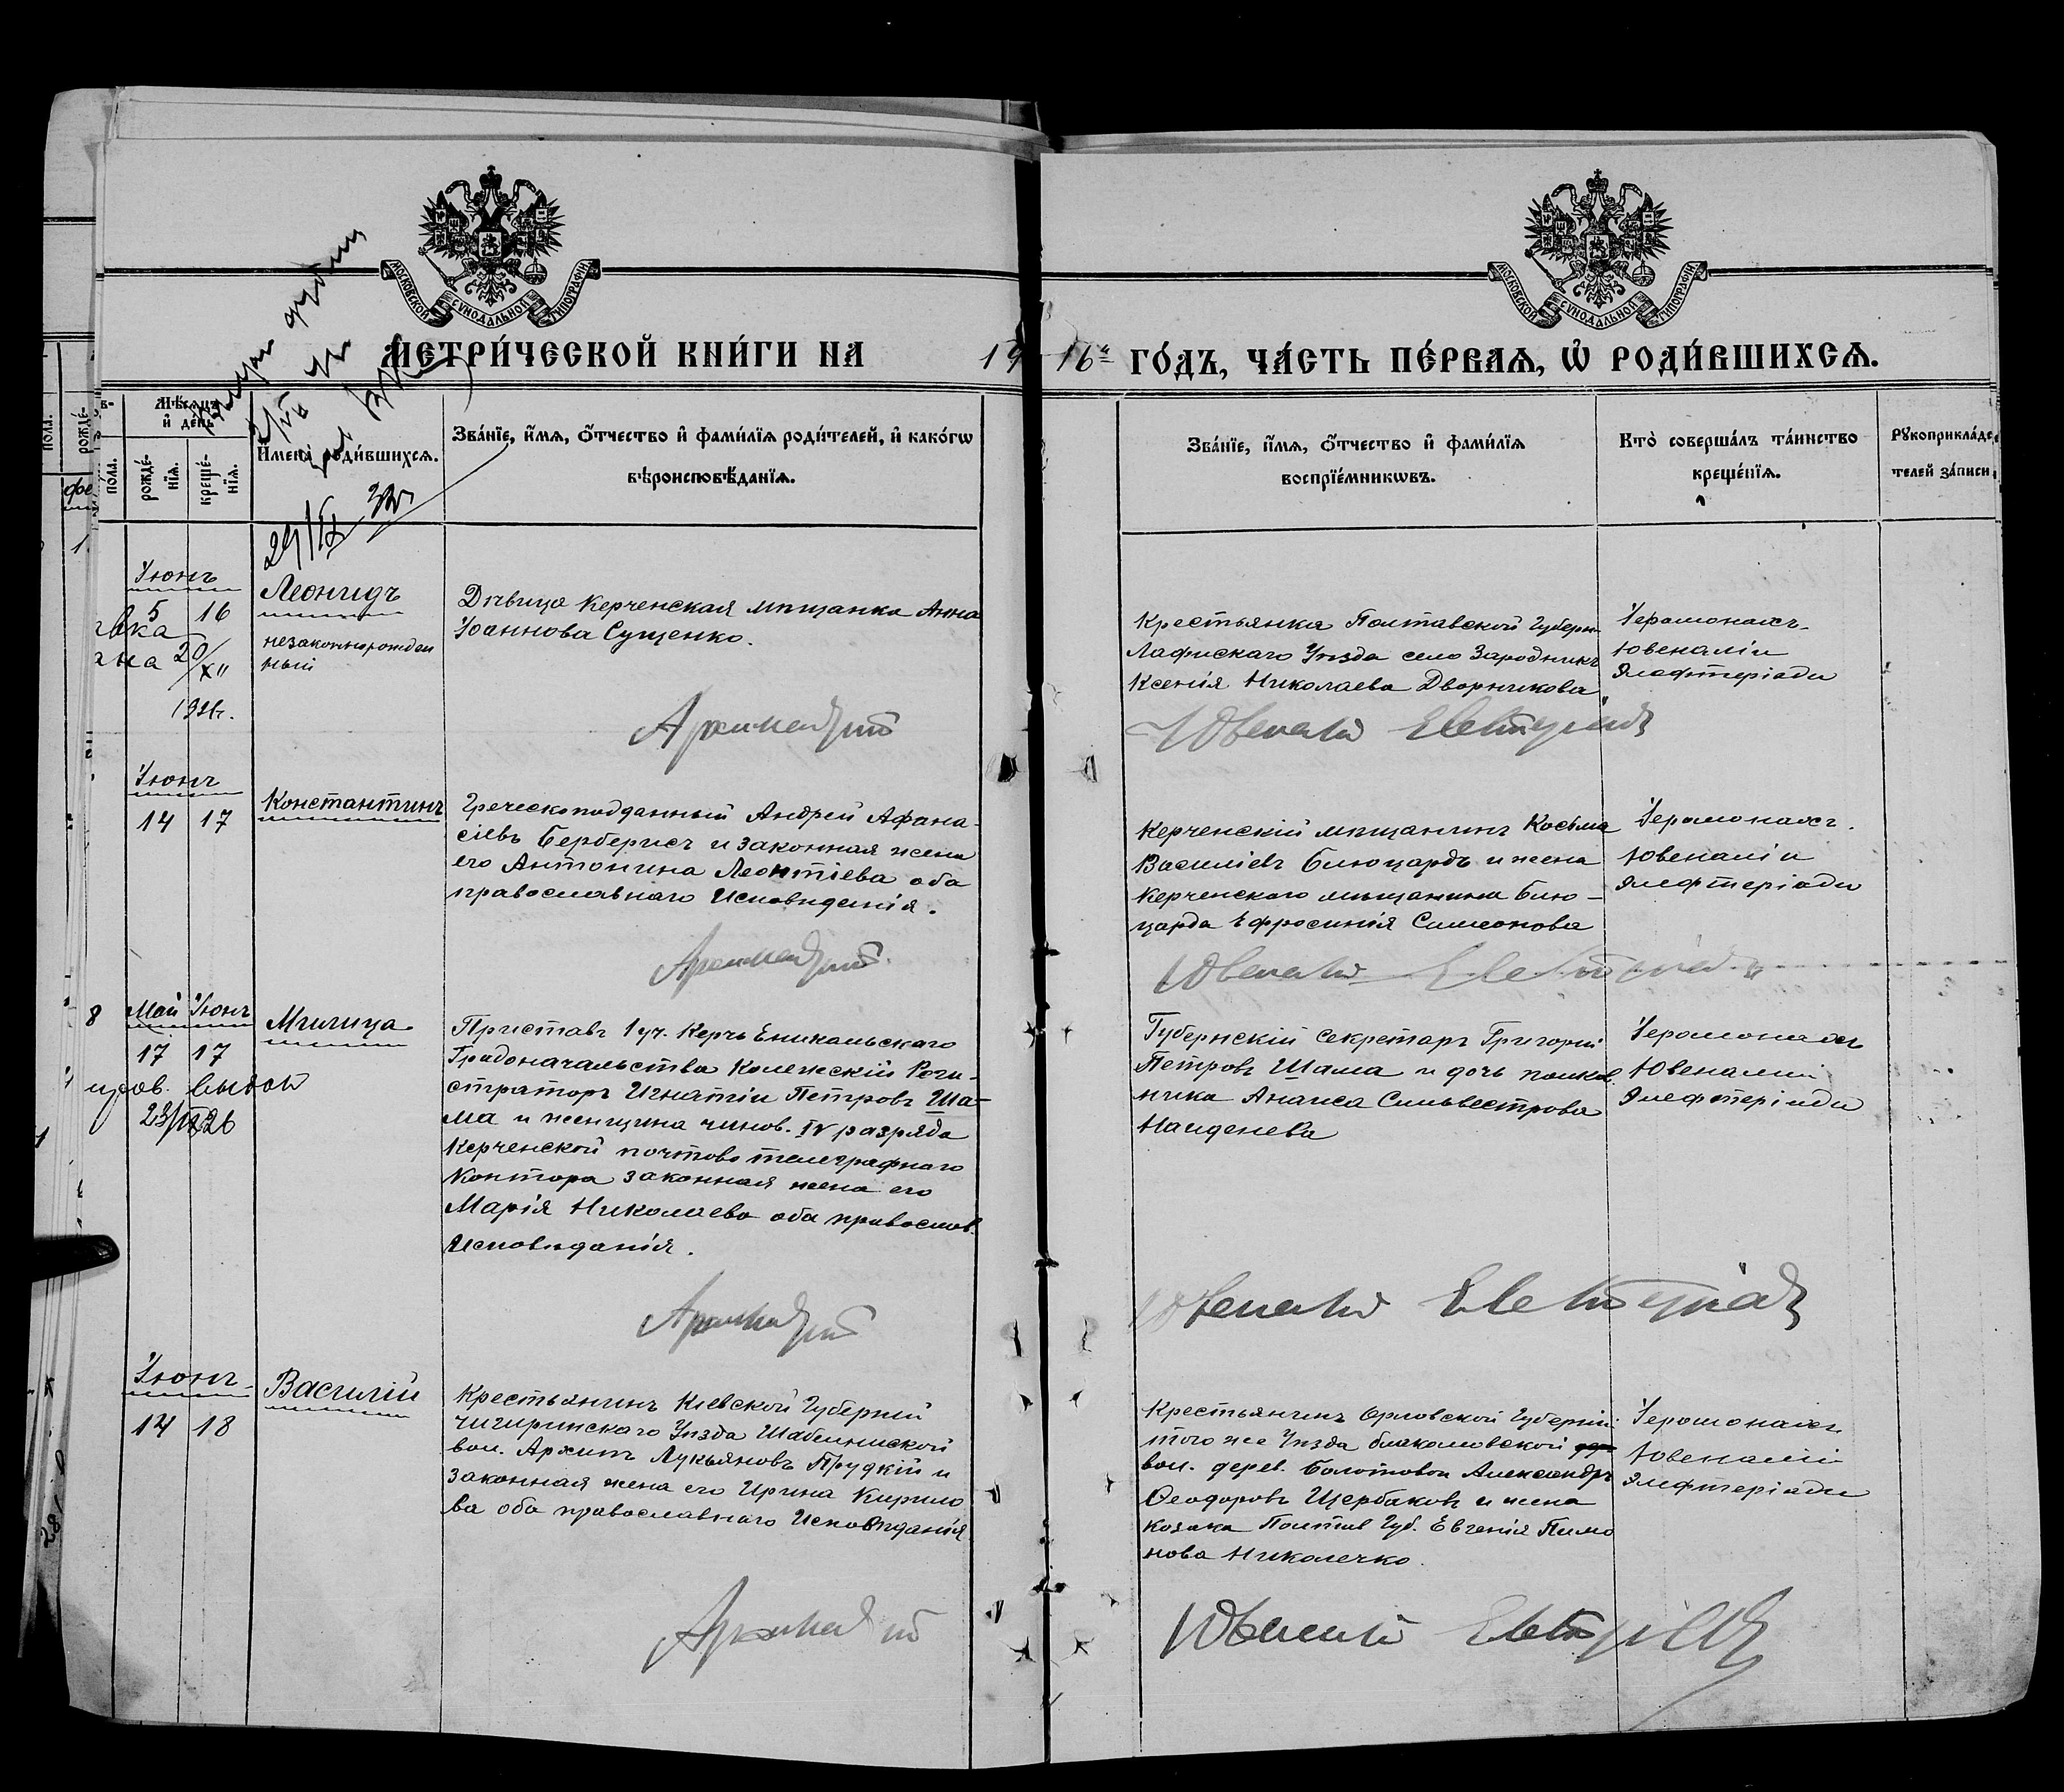 МОСКОВСКОЙ СѴНОДАЛЬНОЙ ТИПОГРАФІИ
МОСКОВСКОЙ СѴНОДАЛЬНОЙ ТИПОГРАФІИ
МЕТРИ́ЧЕСКОЙ КНИ́ГИ НА 1916 ГО́ДЪ, ЧА́СТЬ ПЕ́РВАЯ, Ѡ РОДИ́ВШИХСЯ.
Мѣсяцъ и҆ де́нь
рожде́-нїя.
креще́-нїя.
И҆мена̀ роди́вшихся.
Зва́нїе, и҆́мя, ѻ҆́тчество и҆ фами́лїя роди́телей, и҆ како́гѡ
вѣроисповѣ́данїя.
Зва́нїе, и҆́мя, ѻ҆́тчество и҆ фами́лїя
воспрїе́мникѡвъ.
Кто̀ соверша́лъ та́инство
креще́нїя.
Рꙋкоприкла́де
телей за́писи
Іюнь
5 16
20/XII
Леонидъ
незаконнорожден
ный
Дѣвица Керченская мѣщанка Анна
Іоаннова Сущенко.
Крестьянка Полтавской Губерн.
Уѣзда село
Ксенія Николаева Дворникова
Іеромонахъ
Ювеналій
Элефтеріади
Іюнь
14 17
Константинъ
Греческоподданный Андрей Афана-
сіевъ Берберисъ и законная жена
его Антонина Леонтіева оба
православнаго Исповѣданія.
Керченскій мѣщанинъ Косьма
Василіевъ Блюцардъ и жена
Керченского мѣщанина Блю-
царда Ефросинія Симеонова
Іеромонахъ
Ювеналій
Элефтеріади
8
Май Іюнь
17 17
выдан
Милица
Приставъ 1 уч. Керчь Еникальскаго
Градоначальства Колежскій Реги-
страторъ Игнатій Петровъ Ша-
ма и женщина чинов. IV разряда
Керченской почтово телеграфнаго
Контора законная жена его
Марія Николаева оба православ.
Исповѣданія.
Губернскій Секретарь Григорій
Петровъ Шама и дочь полков.
ника Анаиса Сильвестрова
Найденева
Іеромонахъ
Ювеналій
Элефтеріади
Іюнь
14 18
Василій
Крестьянинъ Кіевской Губерніи
Чигиринскаго Уѣзда Шабельниской
вол. Архипъ Лукьяновъ Прудкій и
законная жена его Ирина Кирило
ва оба православнаго Исповѣданія
Крестьянинъ Орловской Губерніи
того же Уѣзда
вол. дерев. Болотовой Александръ
Ѳеодоровъ Щербаковъ и жена
козака Полтав Губ. Евгенія Пимо
нова Николечко.
Іеромонахъ
Ювеналій
Элефтеріади